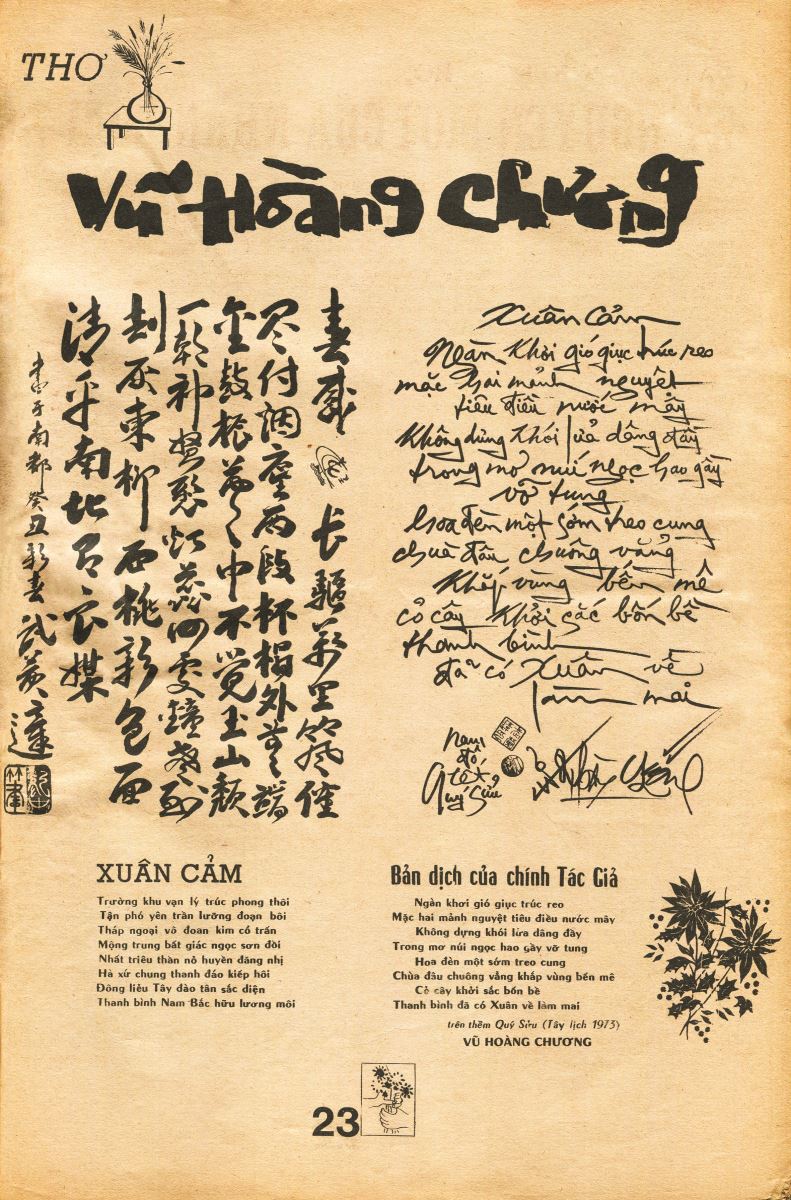 THƠ
Vũ Hoàng Chương
春感 長驅萬里竹風催
尽付烟塵兩段杯榻外無端
金鼓振夢中不覺玉山頹
一朝神弩懸燈蕊何處鐘聲到
劫灰東柳西桃新色面
清平南北有良媒
南都癸丑新春武
Xuân cảm
Ngàn khơi gió giục trúc reo
mặc hai mảnh nguyệt
tiêu điều nước mây
Không dựng khói lửa dâng đầy
trong mơ núi ngọc hao gầy
vỡ tung
hoa đèn một sớm treo cung
chùa đâu chuông vẳng
khắp vùng bến mê
cỏ cây khởi sắc bốn bề
thanh bình
đã có Xuân về
làm mai
Nam
đô
tết
Quý Sửu
XUÂN CẢM
Trường khu vạn lý trúc phong thôi
Tận phó yên trần lưỡng đoạn bôi
Tháp ngoại vô đoan kim cổ trấn
Mộng trung bất giác ngọc sơn đồi
Nhất triêu thần nỗ huyền đăng nhị
Hà xứ chung thanh đáo kiếp hôi
Đông liễu Tây đào tân sắc diện
Thanh bình Nam Bắc hữu lương môi
Bản dịch của chính Tác Giả
Ngàn khơi gió giục trúc reo
Mặc hai mảnh nguyệt tiêu điều nước mây
Không dựng khói lửa dâng đầy
Trong mơ núi ngọc hao gầy vỡ tung
Hoa đèn một sớm treo cung
Chùa đâu chuông vẳng khắp vùng bến mê
Cỏ cây khởi sắc bốn bề
Thanh bình đã có Xuân về làm mai
trên thềm Quý Sửu (Tây lịch 1973)
VŨ HOÀNG CHƯƠNG
23